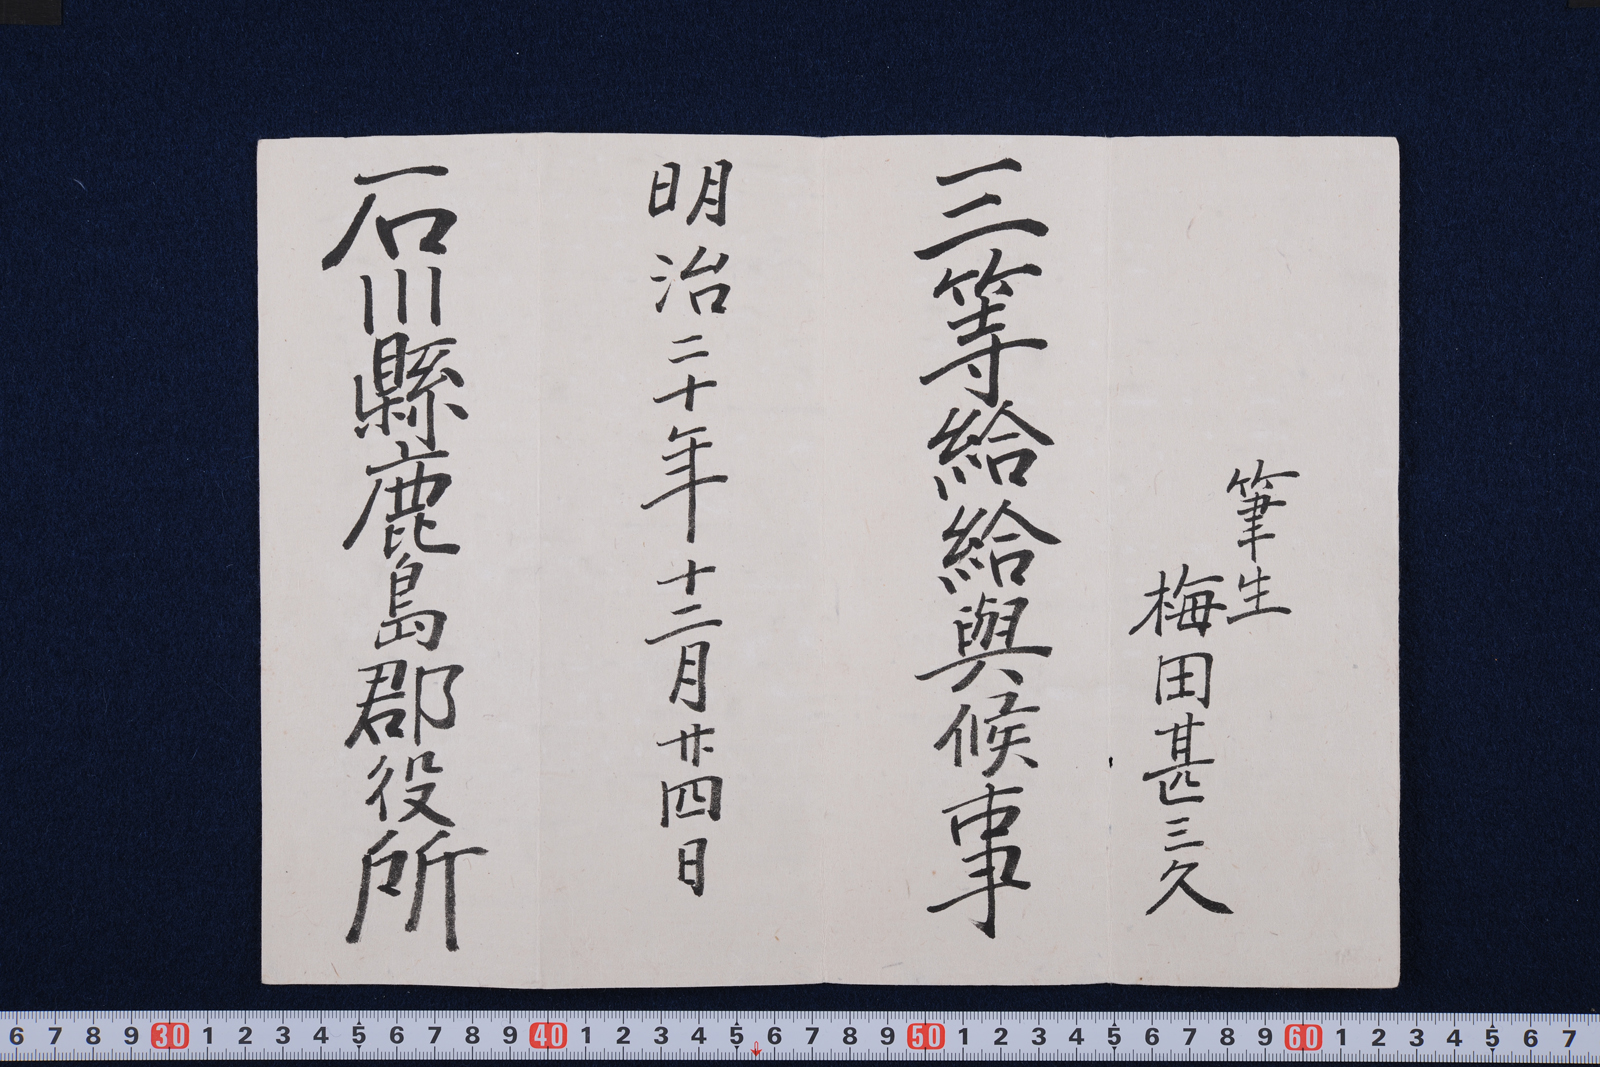 筆生
梅田甚三久
三等給給與候事
明治二十年十二月廿四日
石川縣鹿島郡役所
6 7 8 9 30 1 2 3 4 5 6 7 8 9 40 1 2 3 4 5 6 7 8 9 50 1 2 3 4 5 6 7 8 9 60 1 2 3 4 5 6 7